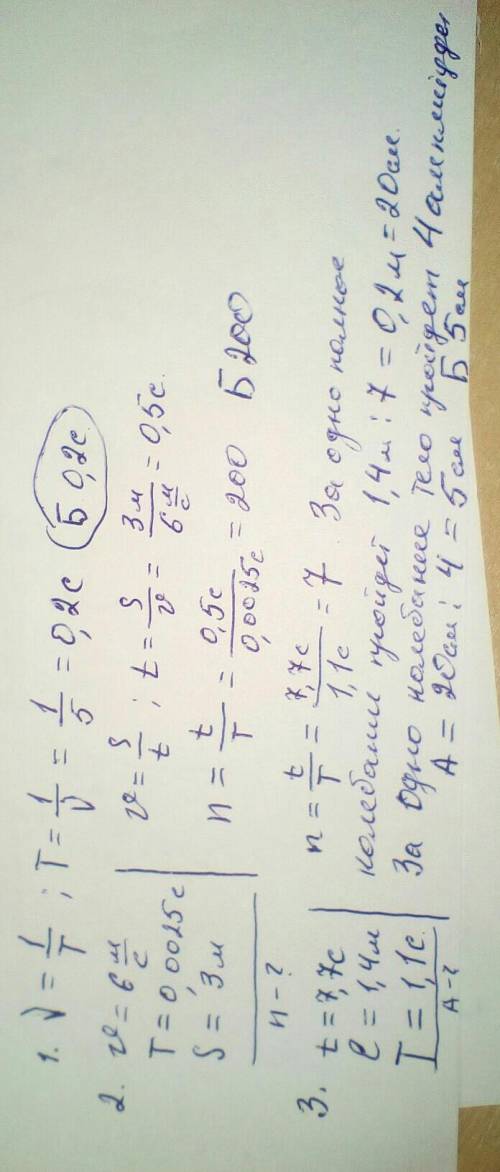 1. ν = 1/T ; T = 1/ν = 1/5 = 0,2 с Б 0,2 с.
2. υ = 6 м/с
T = 0,0025 с
S = 3 м
n - ?
υ = S/t ; t = S/υ = 3 м / 6 м/с = 0,5 с.
n = t/T = 0,5 с / 0,0025 с = 200 Б 200
3. t = 7,7 с
l = 1,4 м
T = 1,1 с.
A - ?
n = t/T = 7,7 с / 1,1 с = 7 За одно полное
колебание пройдет 1,4 м : 7 = 0,2 м = 20 см.
За одно колебание тело пройдет 4 амплитуды
A = 20 см : 4 = 5 см Б 5 см